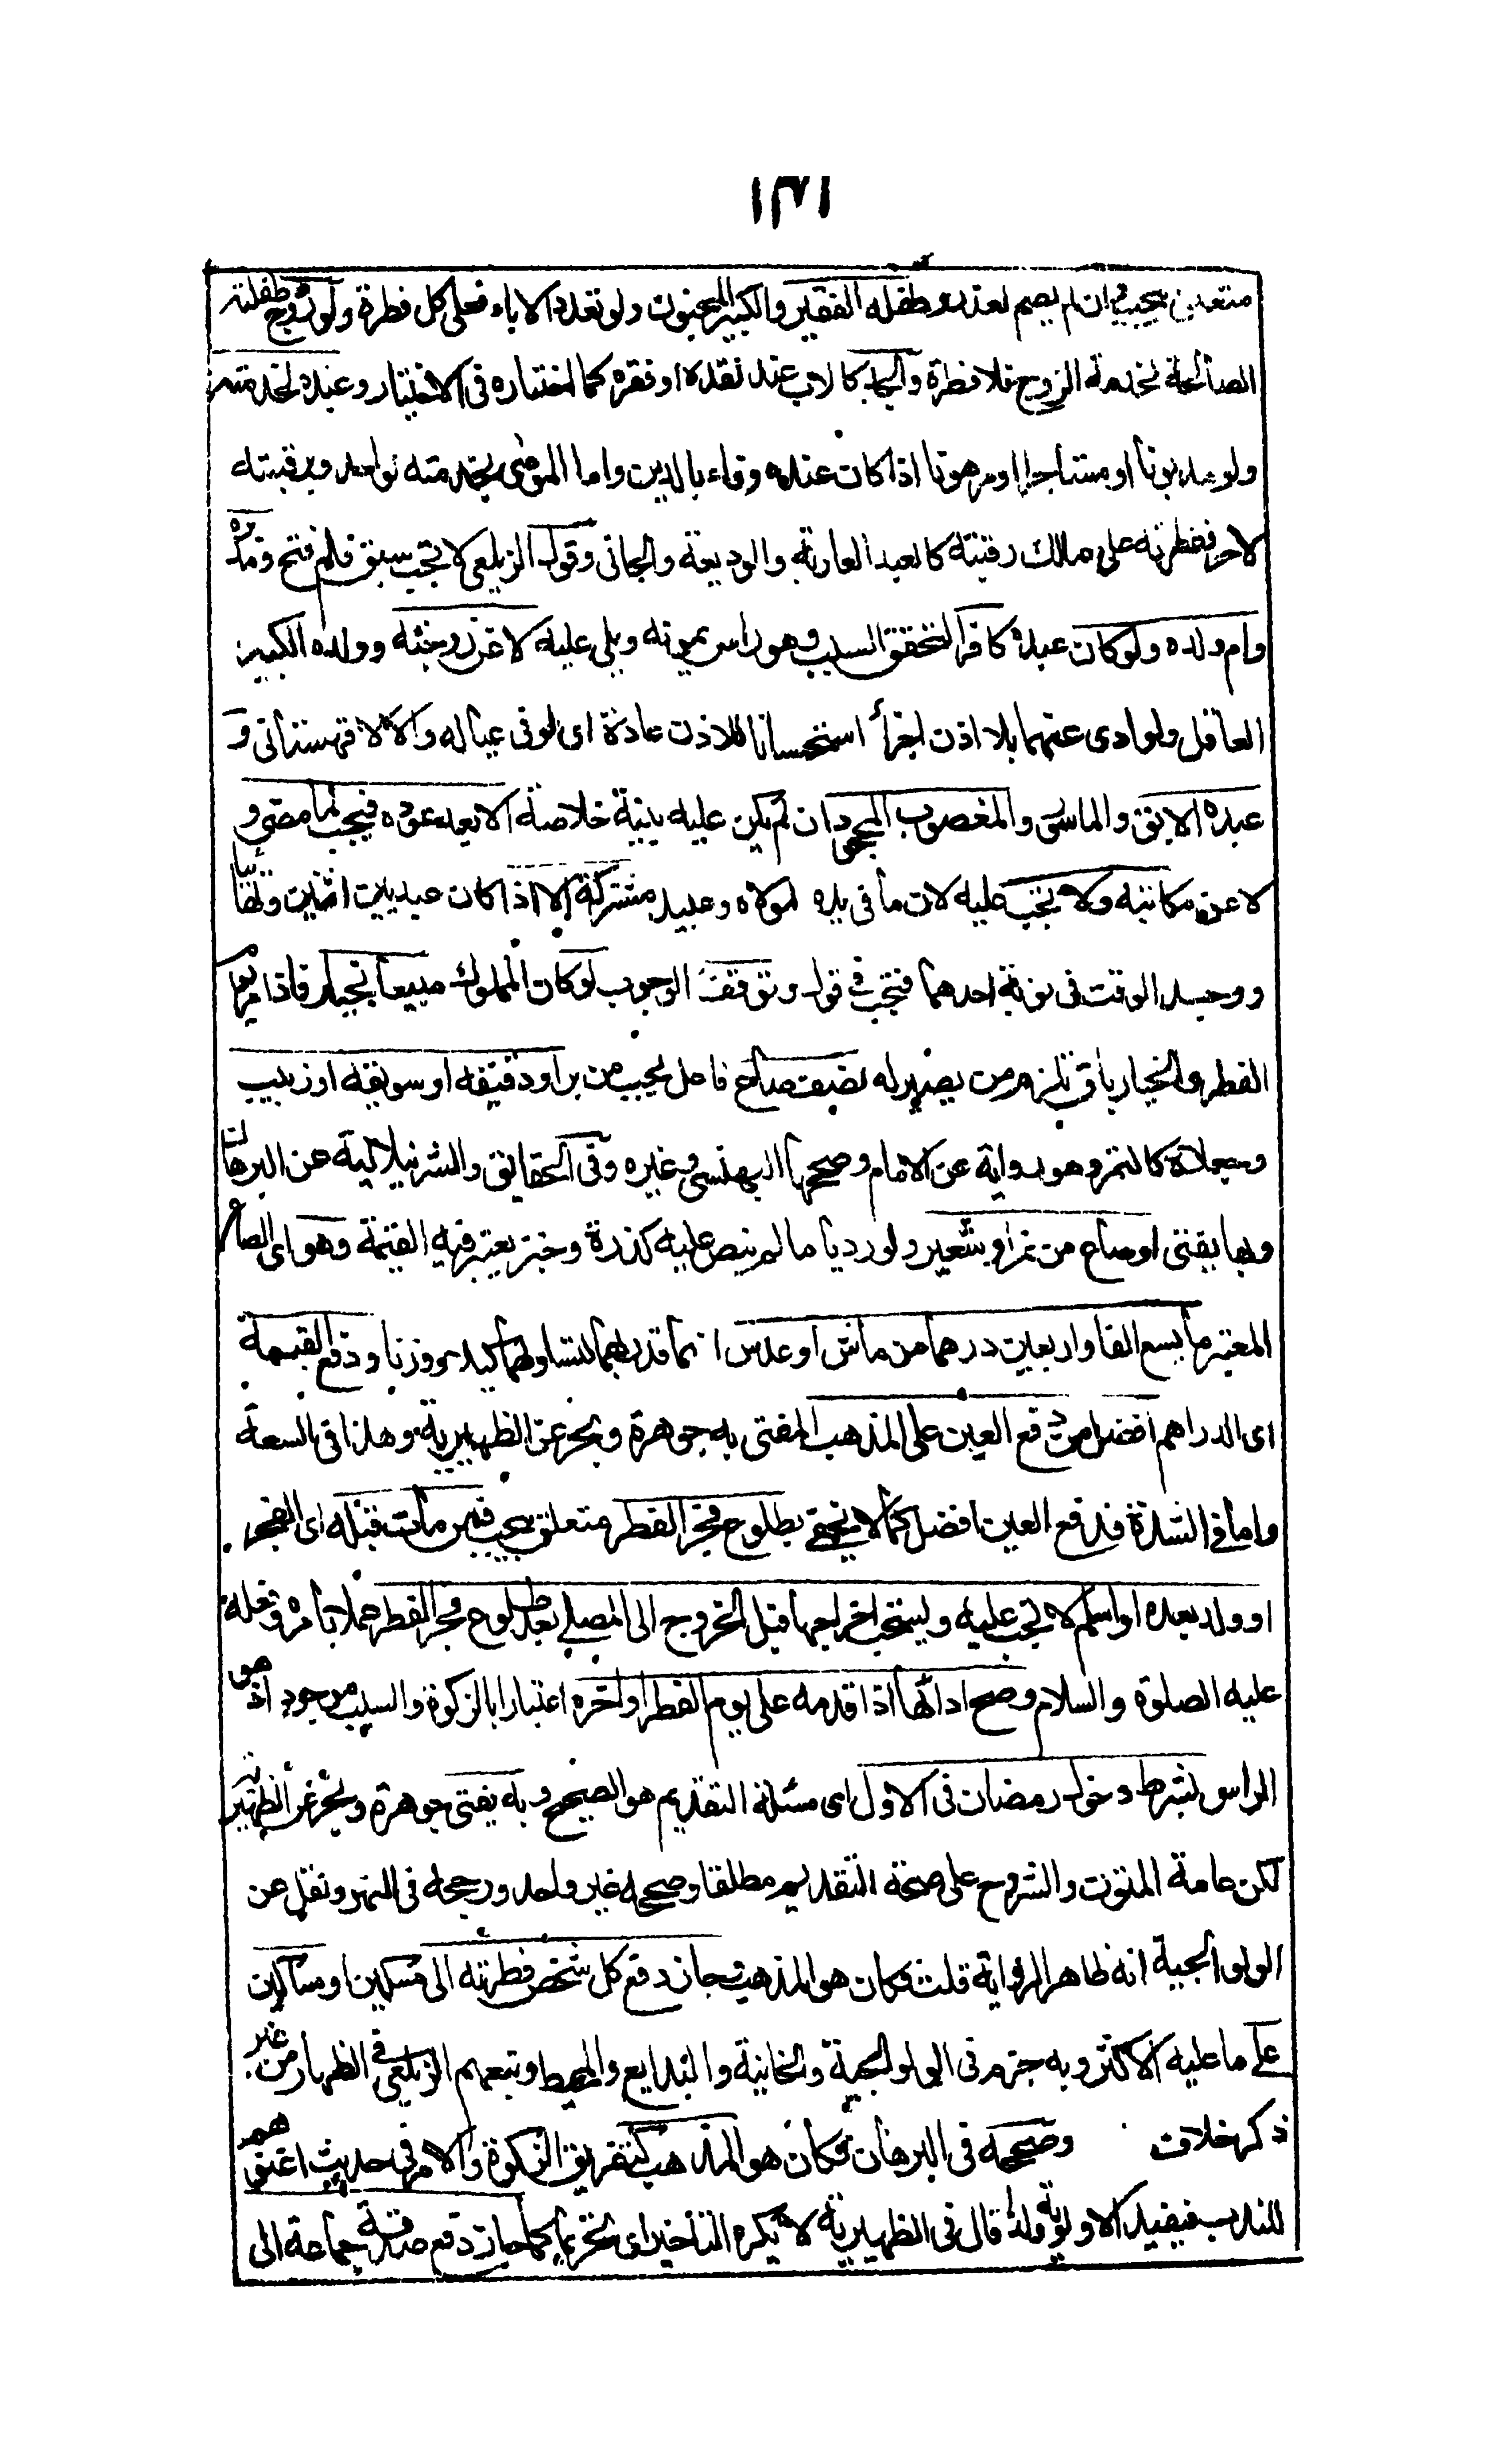 ١٣١
متعلق بيجب وان لم يصم لعذر وطفله الفقير والكبير المجنون ولو تعدد الاباء فعلى كل فطرة ولو زوج طفلته
الصالحة لخدمة الزوج فلا فطرة والجد كالاب عند فقده او فقره كما اختاره فى الاختيار وعبده لخدمته
ولو مديونا او مستاجرا او مرهونا اذا كان عنده وفاء بالدين واما الموصى بخدمته لواحد وبرقبته
لاخر ففطرته على مالك رقبته كالعبد العارية والوديعة والجانى وقول الزيلعى لا تجب سبق قلم فتح ومدبره
وام ولده ولو كان عبده كافرا لتحقق السبب وهو راس يمونه ويلى عليه لا عن زوجته وولده الكبير
العاقل ولو ادى عنهما بلا اذن اجزأ استحسانا للاذن عادة اى لو فى عياله والا لا قهستانى و
عبده الابق والماسور والمغصوب المجحود ان لم يكن عليه بينة خلاصة الا بعد عوده فيجب لما مضى و
لا عن مكاتبه ولا تجب عليه لان ما فى يده لمولاه وعبيد مشتركة الا اذا كان عبد بين اثنين وتهايئا
ووجد الوقت فى نوبة احدهما فتجب فى قول وتوقف الوجوب لو كان المملوك مبيعا بخيار فاذا مر يوم
الفطر والخيار باق تلزم من يصير له نصف صاع فاعل يجب من بر او دقيقه او سويقه او زبيب
وجعلاه كالتمر وهو رواية عن الامام وصححها البهنسى وغيره وفى الحقايق والشرنبلالية عن البرهان
وبها يفتى او صاع من تمر او شعير ولو رديا ما لم ينص عليه كذرة وخبز يعتبر فيه القيمة وهو اى الصاع
المعتبر ما يسع الفا واربعين درهما من ماش او عدس انما قدر بهما لتساويهما كيلا ووزنا ودفع القيمة
اى الدراهم افضل من دفع العين على المذهب المفتى به جوهرة وبحر عن الظهيرية وهذا فى السعة
واما فى الشدة فدفع العين افضل كما لا يخفى بطلوع فجر الفطر متعلق بيجب فمن مات قبله اى الفجر
او ولد بعده او اسلم لا تجب عليه ويستحب اخراجها قبل الخروج الى المصلى بعد طلوع فجر الفطر عملا بامره وفعله
عليه الصلوة والسلام وصح اداؤها اذا قدمه على يوم الفطر او اخره اعتبارا بالزكوة والسبب موجود اذ هو
الراس بشرط دخول رمضان فى الاول اى مسئلة التقديم هو الصحيح وبه يفتى جوهرة وبحر عن الظهيرية
لكن عامة المتون والشروح على صحة التقديم مطلقا وصححه غير واحد ورجحه فى النهر ونقل عن
الولوالجية انه ظاهر الرواية قلت فكان هو المذهب وجاز دفع كل شخص فطرته الى مسكين او مساكين
على ما عليه الاكثر وبه جزم فى الولوالجية والخانية والبدايع والمحيط وتبعهم الزيلعى فى الظهار من غير
ذكر خلاف وصححه فى البرهان فكان هو المذهب كتفريق الزكوة والامر فى حديث اغنوهم
للندب فيفيد الاولوية ولذا قال فى الظهيرية لا يكره التأخير اى تحريما كما جاز دفع صدقة جماعة الى